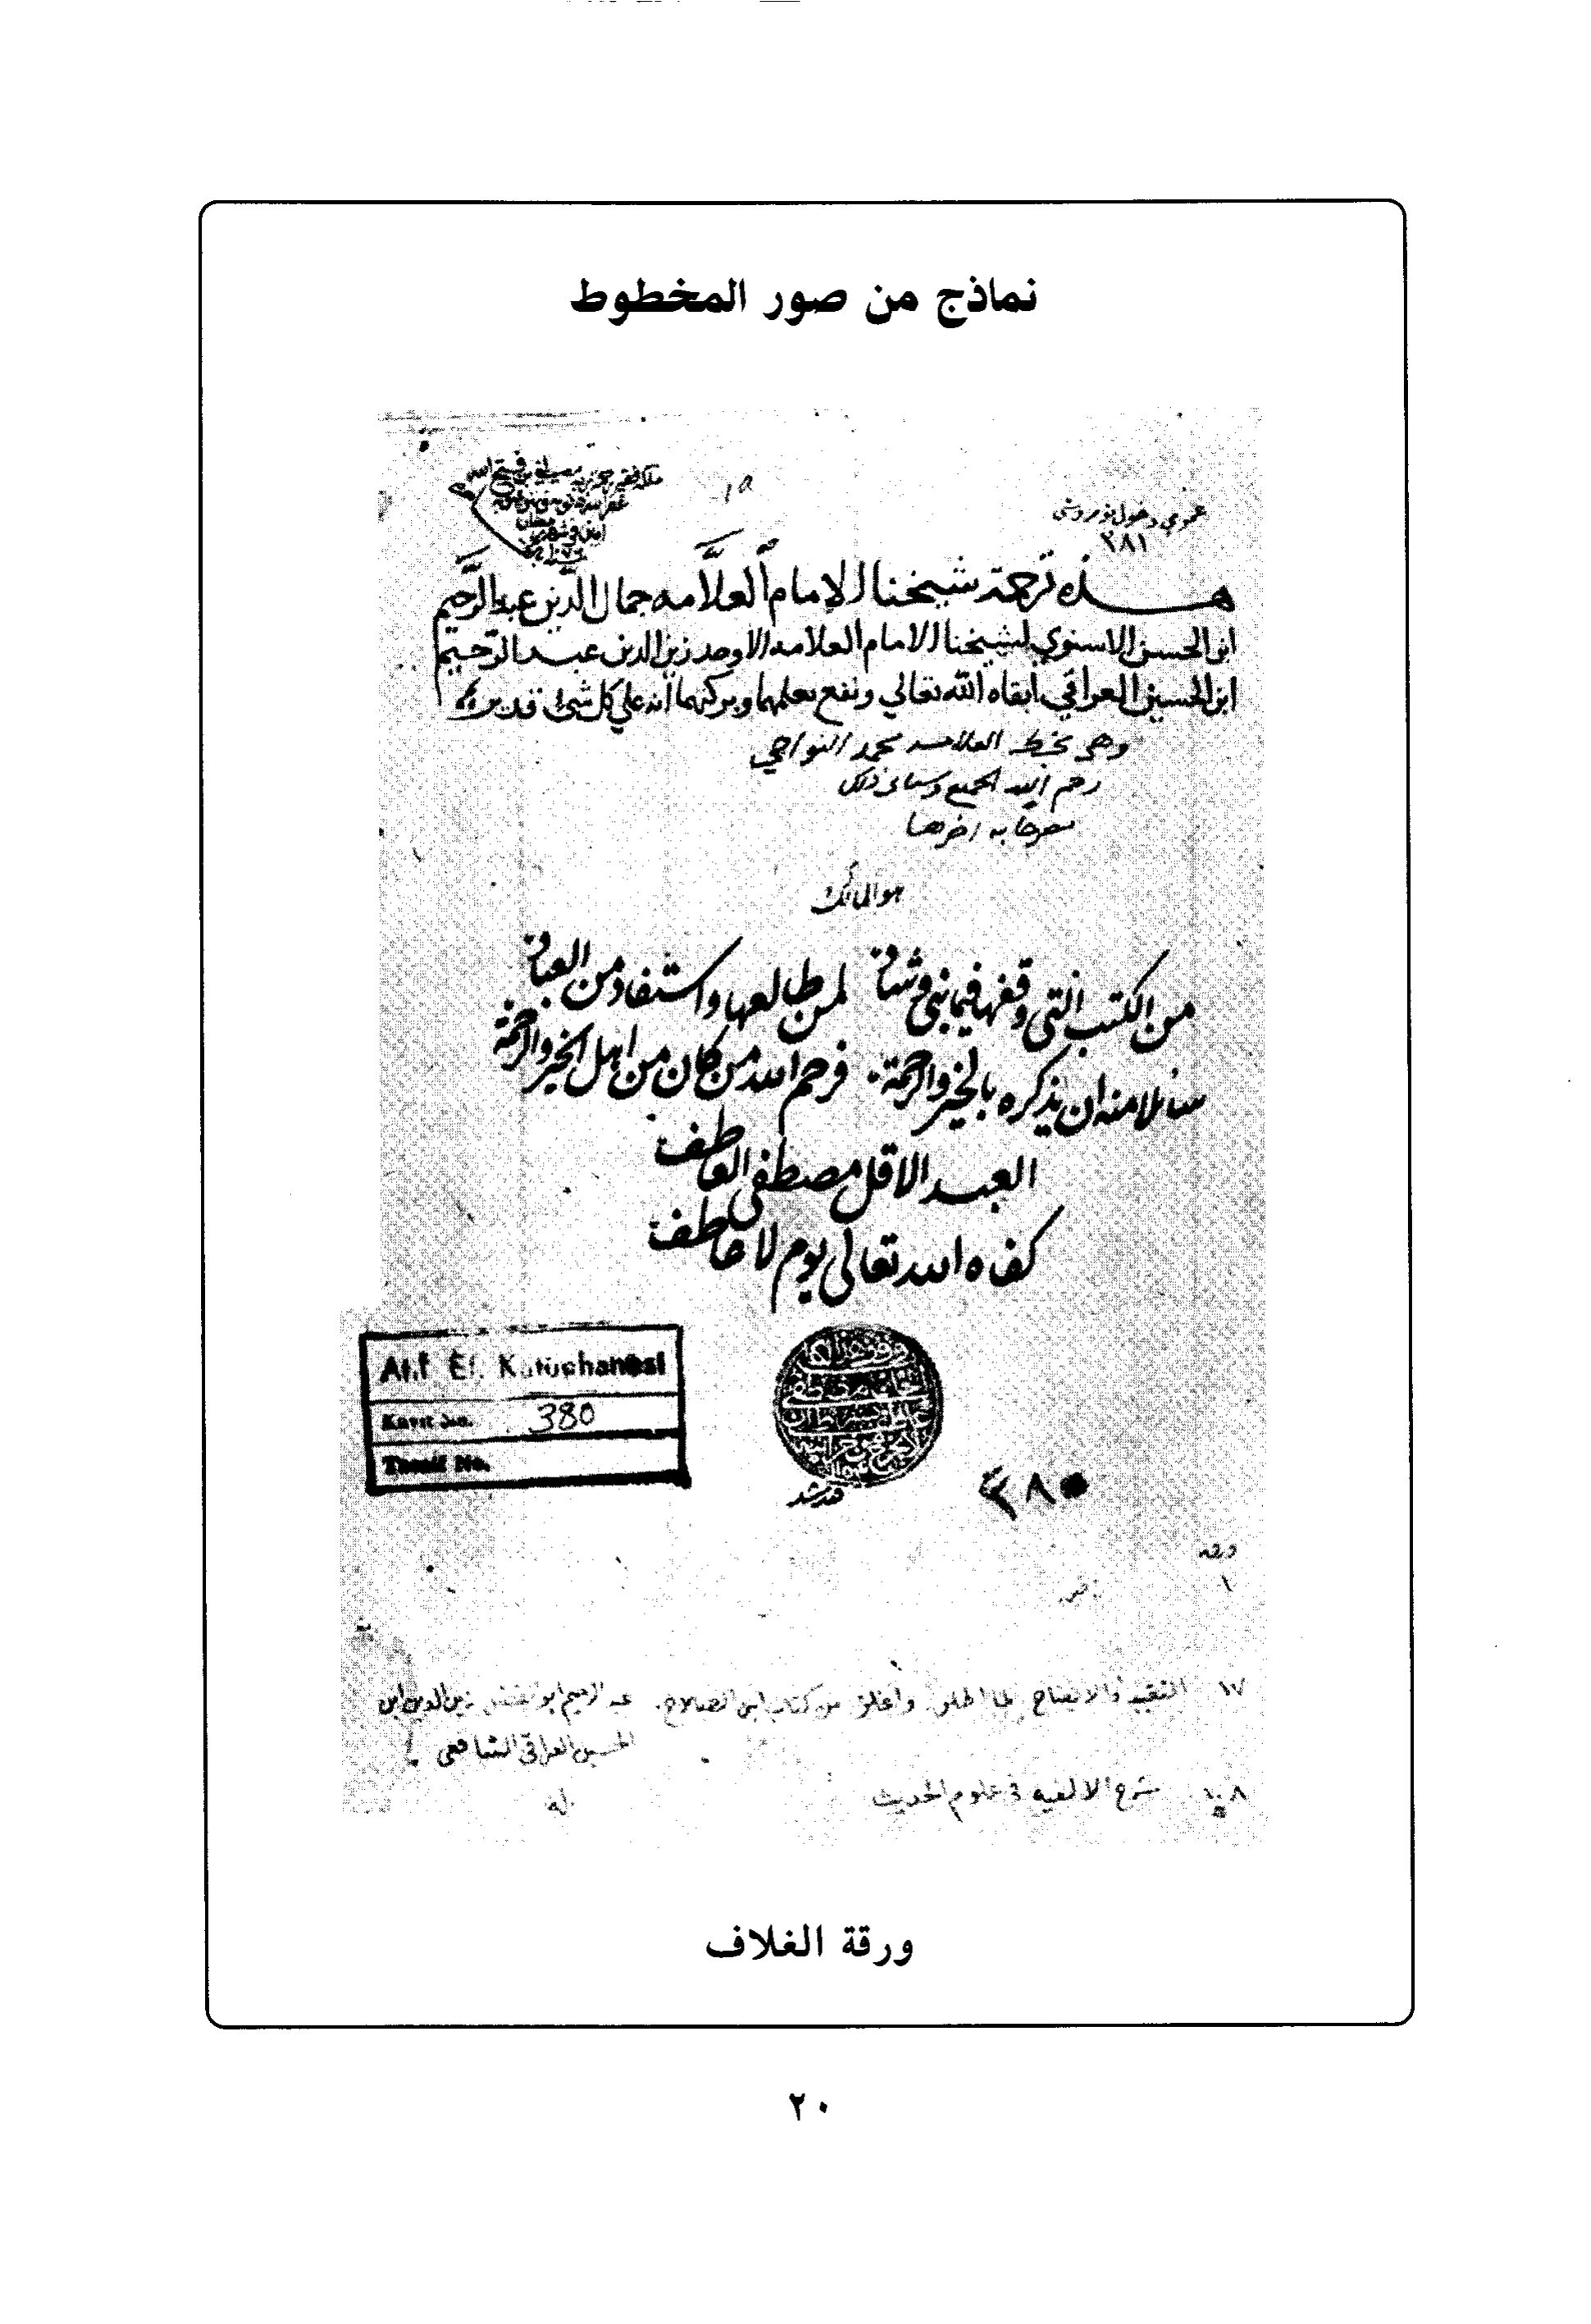 نماذج من صور المخطوط
1a
٣٨١
هذه ترجمة شيخنا الإمام العلامه جمال الدين عبد الرحيم
ابن الحسن الاسنوي لشيخنا الامام العلامه الاوحد زين الدين عبد الرحيم
ابن الحسين العراقي ابقاه الله تعالي ونفع بعلمهما وبركتهما انه علي كل شئ قدير
وهي بخط العلامه محمد النواجي
رحم الله الجميع
هو المالك
من الكتب التي وقفها لمن طالعها واستفاد من
سائلا منه ان يذكره بالخير والرحمة فرحم الله من كان من اهل الخير والرحمة
العبد الاقل مصطفى العاطف
كفاه الله تعالى يوم لا عاطف
Atıf Ef. Kütüphanesi
Kayıt No. 380
Tasnif No.
٣٨٠
ورقه
١
١٧ التقييد والايضاح لما اطلق واغلق من كتاب ابن الصلاح. عبد الرحيم ابو الفضل زين الدين ابن
الحسين العراقي الشافعي
١٠٨ شرح الالفيه في علوم الحديث
له
ورقة الغلاف
٢٠